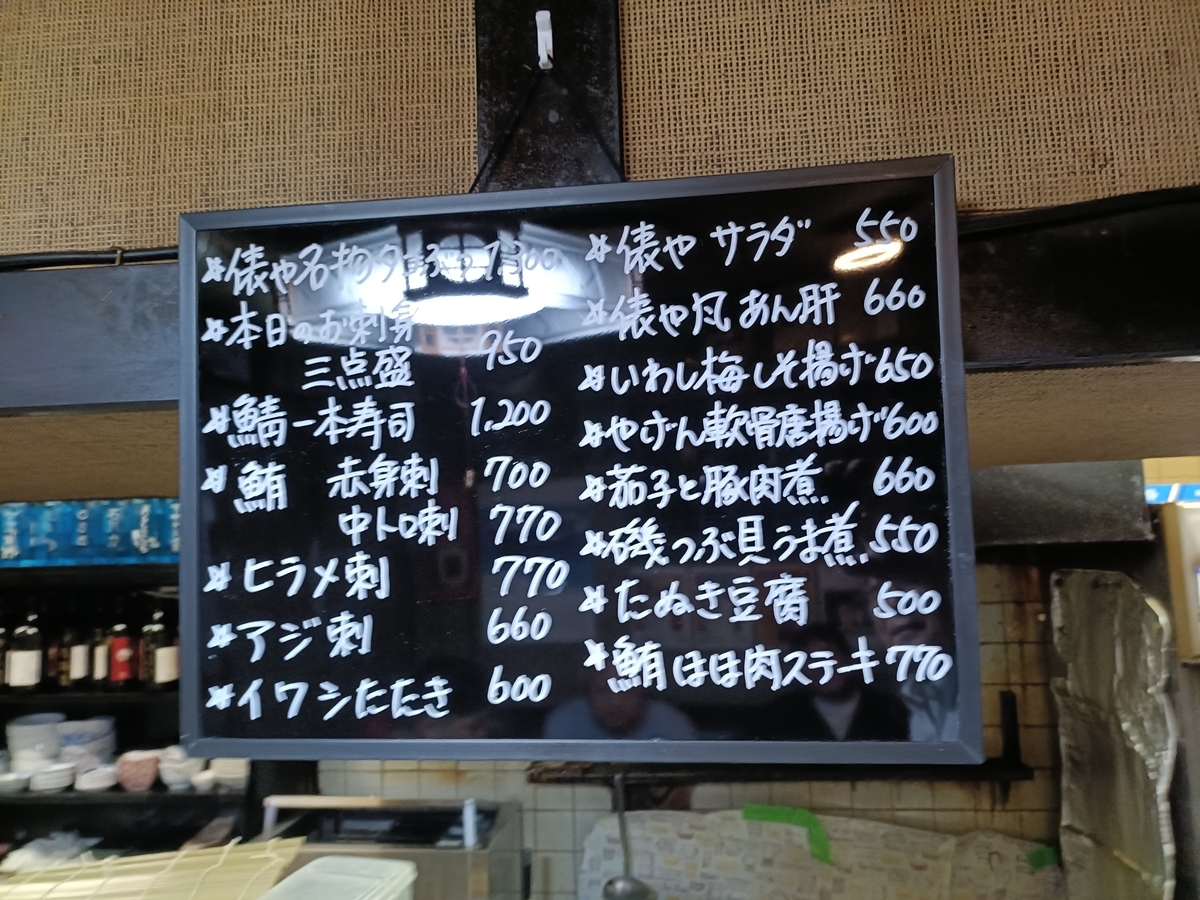 *俵や名物 1,300
*本日のお刺身
三点盛 950
*鯖一本寿司 1.200
*鮪 赤身刺 700
中トロ刺 770
*ヒラメ刺 770
*アジ刺 660
*イワシたたき 600
*俵や サラダ 550
*俵や風 あん肝 660
*いわし梅しそ揚げ 650
*やげん軟骨唐揚げ 600
*茄子と豚肉煮 660
*磯つぶ貝うま煮 550
*たぬき豆腐 500
*鮪ほほ肉ステーキ 770